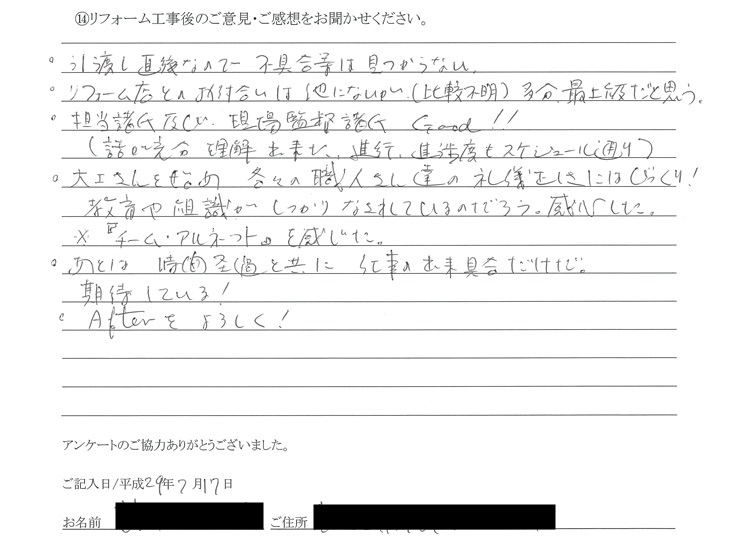 ⑭リフォーム工事後のご意見・ご感想をお聞かせください。
。引渡し直後なので 不具合等は見つからない。
・リフォーム店とのお付合いは他にないが、(比較不明) 多分、最上級だと思う。
・担当諸氏及び、現場監督諸氏 Good!!
(話が充分 理解出来た、進行、進渉度もスケジュール通り)
。大工さんをはじめ 各々の職人さん達の礼儀正しさにはびっくり!
教育や組識がしっかりなされているのだろう。感心した。
※『チーム・アルネット』を感じた。
。あとは 時間経過と共に 仕事の出来具合だけだ。
期待している!
。Afterをよろしく!
アンケートのご協力ありがとうございました。
ご記入日/平成29年7月17日
お名前 ご住所